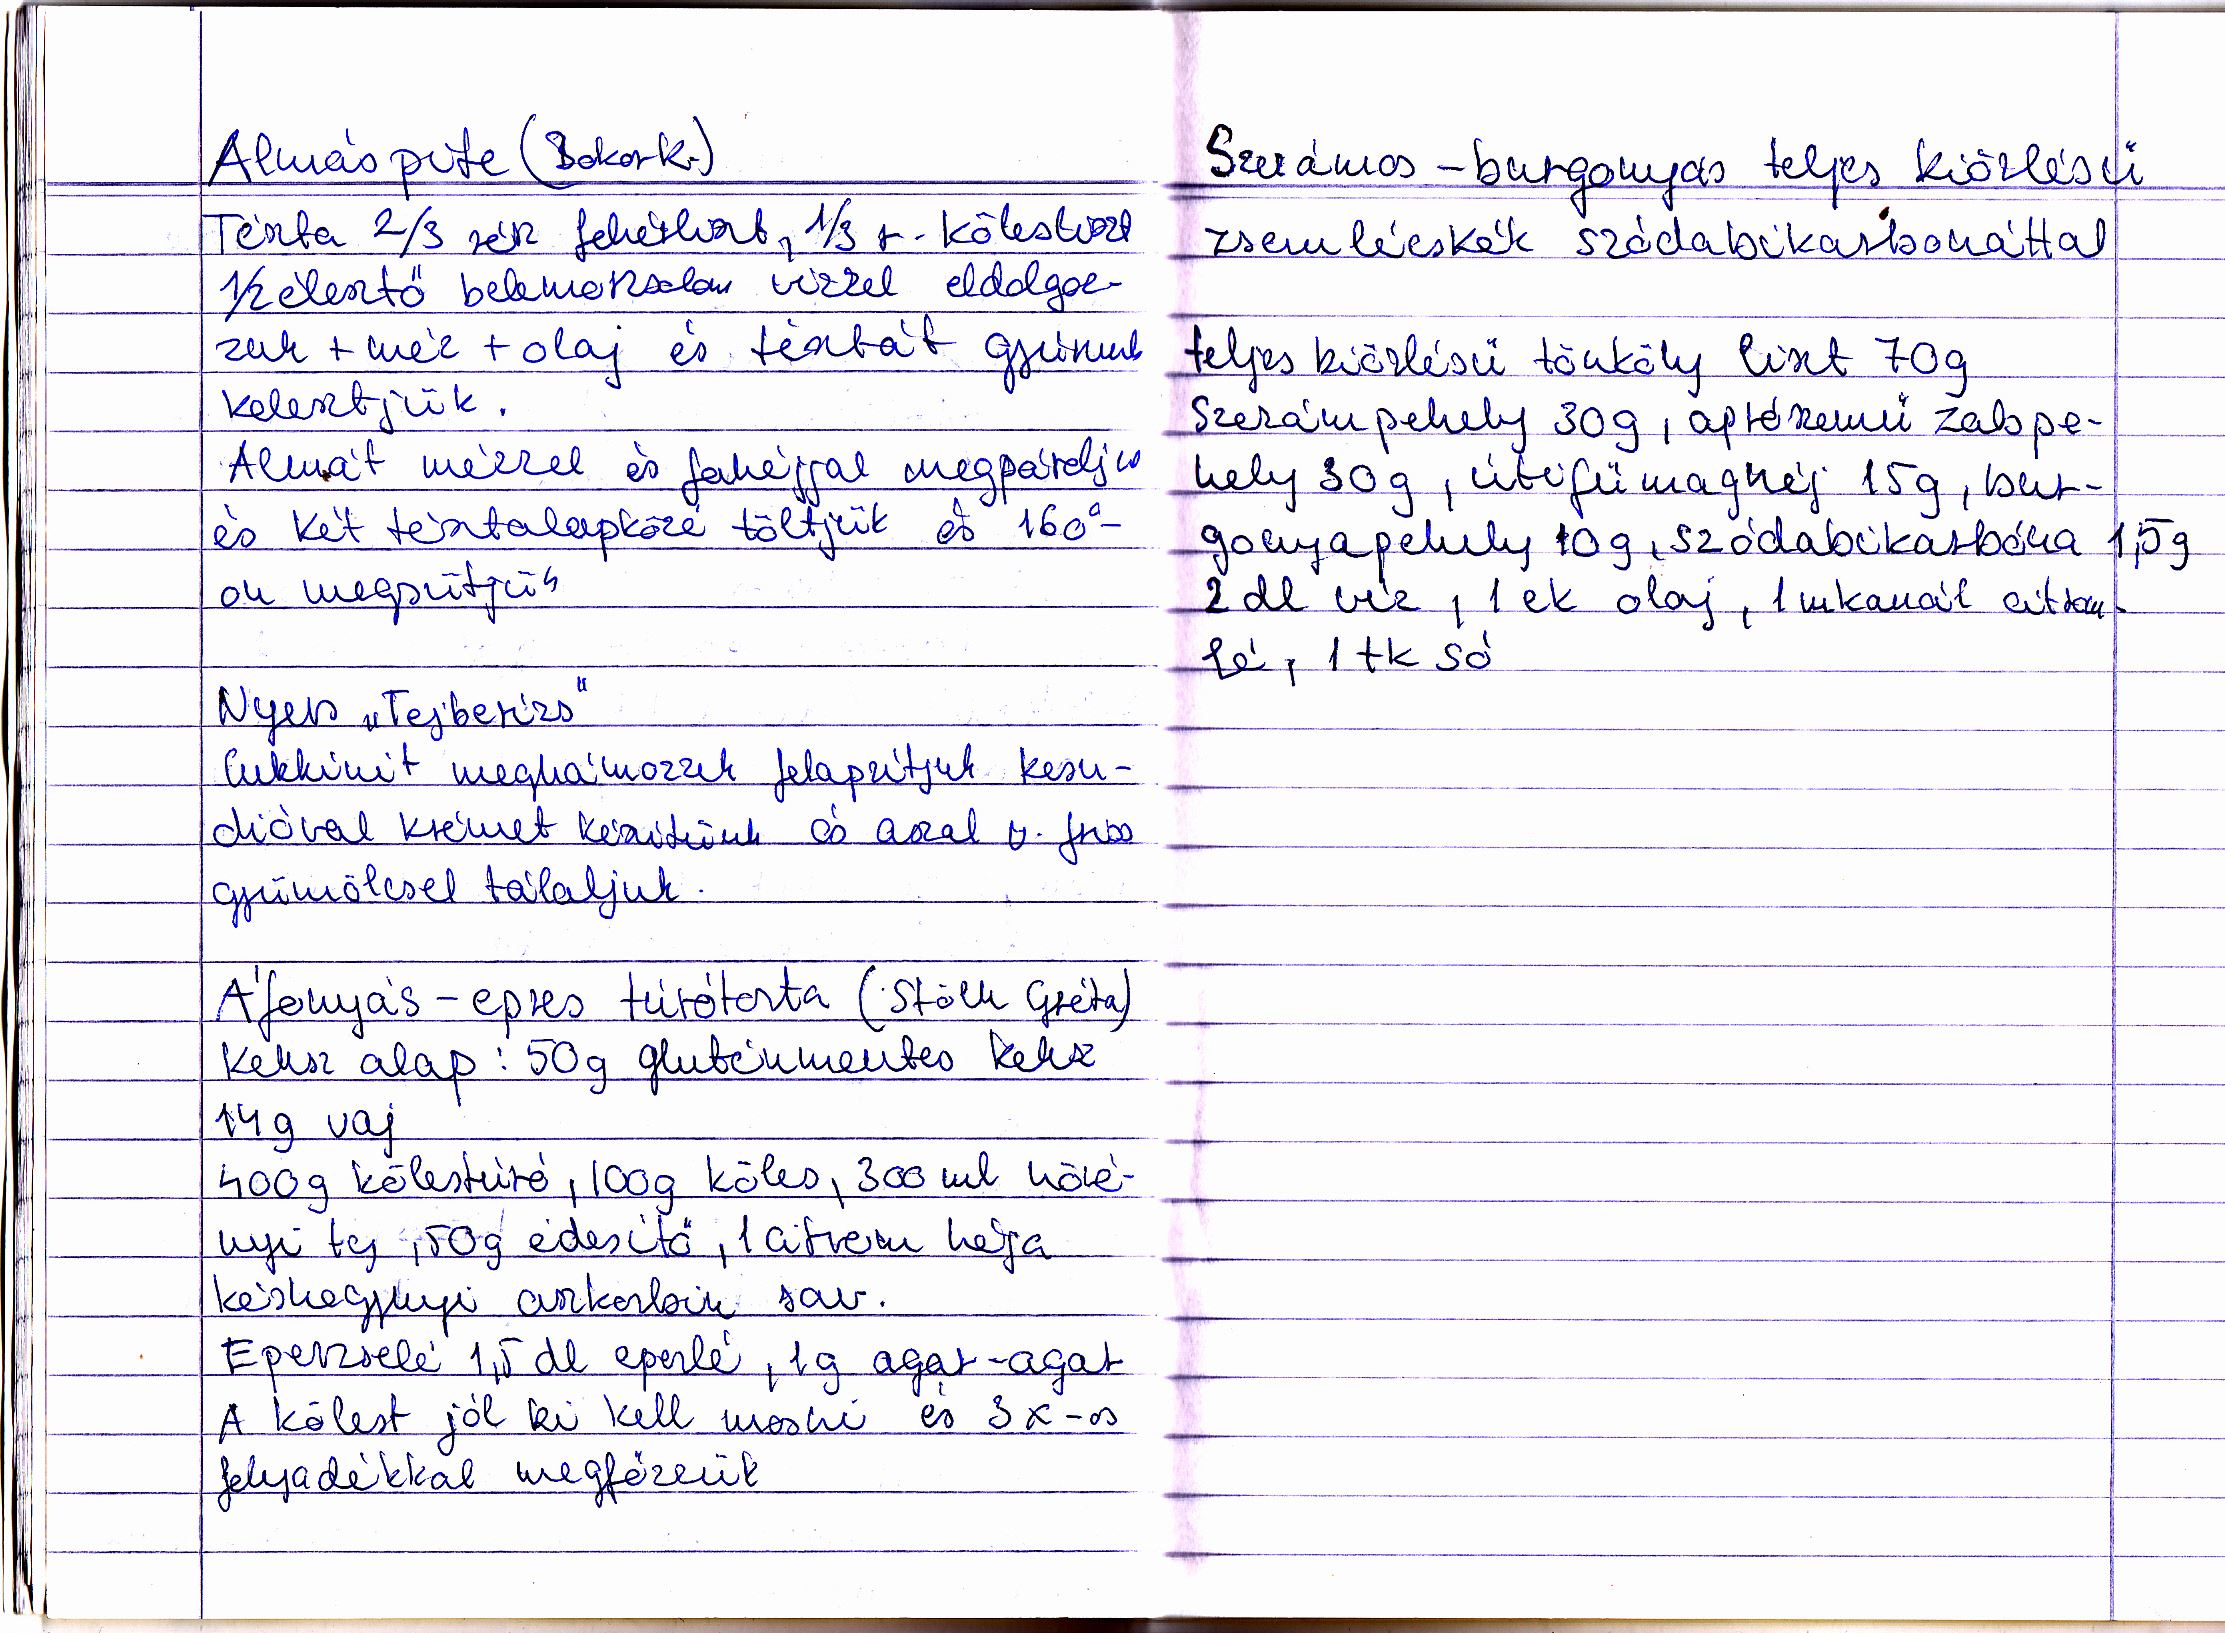 Almás pite (Bokor K.)
Tészta 2/3 rész fehérliszt, 1/3 r. kölesliszt
1/2 élesztő belemorzsolom vízzel eldolgoz-
zuk + méz + olaj és tésztát gyúrunk
kelesztjük.
Almát mézzel és fahéjjal megpároljuk
és két tésztalap közé töltjük és 160°-
on megsütjük
Nyers "Tejberizs"
Cukkinit meghámozzuk felaprítjuk kesu-
dióval krémet készítünk és aszal v. friss
gyümölcsel tálaljuk.
Áfonyás - epres túrótorta (Stölh Gréta)
Keksz alap: 50g gluténmentes keksz
14g vaj
400g kölestúró, 100g köles, 300 ml növé-
nyi tej, 50g édesítő, 1 citrom héja
késhegynyi aszkorbin sav.
Eperzselé 1,5 dl eperlé, 1g agar-agar
A kölest jól ki kell mosni és 3x-os
folyadékkal megfőzzük
Szezámos - burgonyás teljes kiörlésü
zsemlécskék szódabikarbonáttal
teljes kiörlésü tönköly liszt 70g
Szezámpehely 30g, aprószemü zabpe-
hely 30g, útifűmaghéj 15g, bur-
gonyapehely 10g, szódabikarbóna 1,5g
2 dl víz, 1 ek olaj, 1 mkanál citrom-
lé, 1 tk só